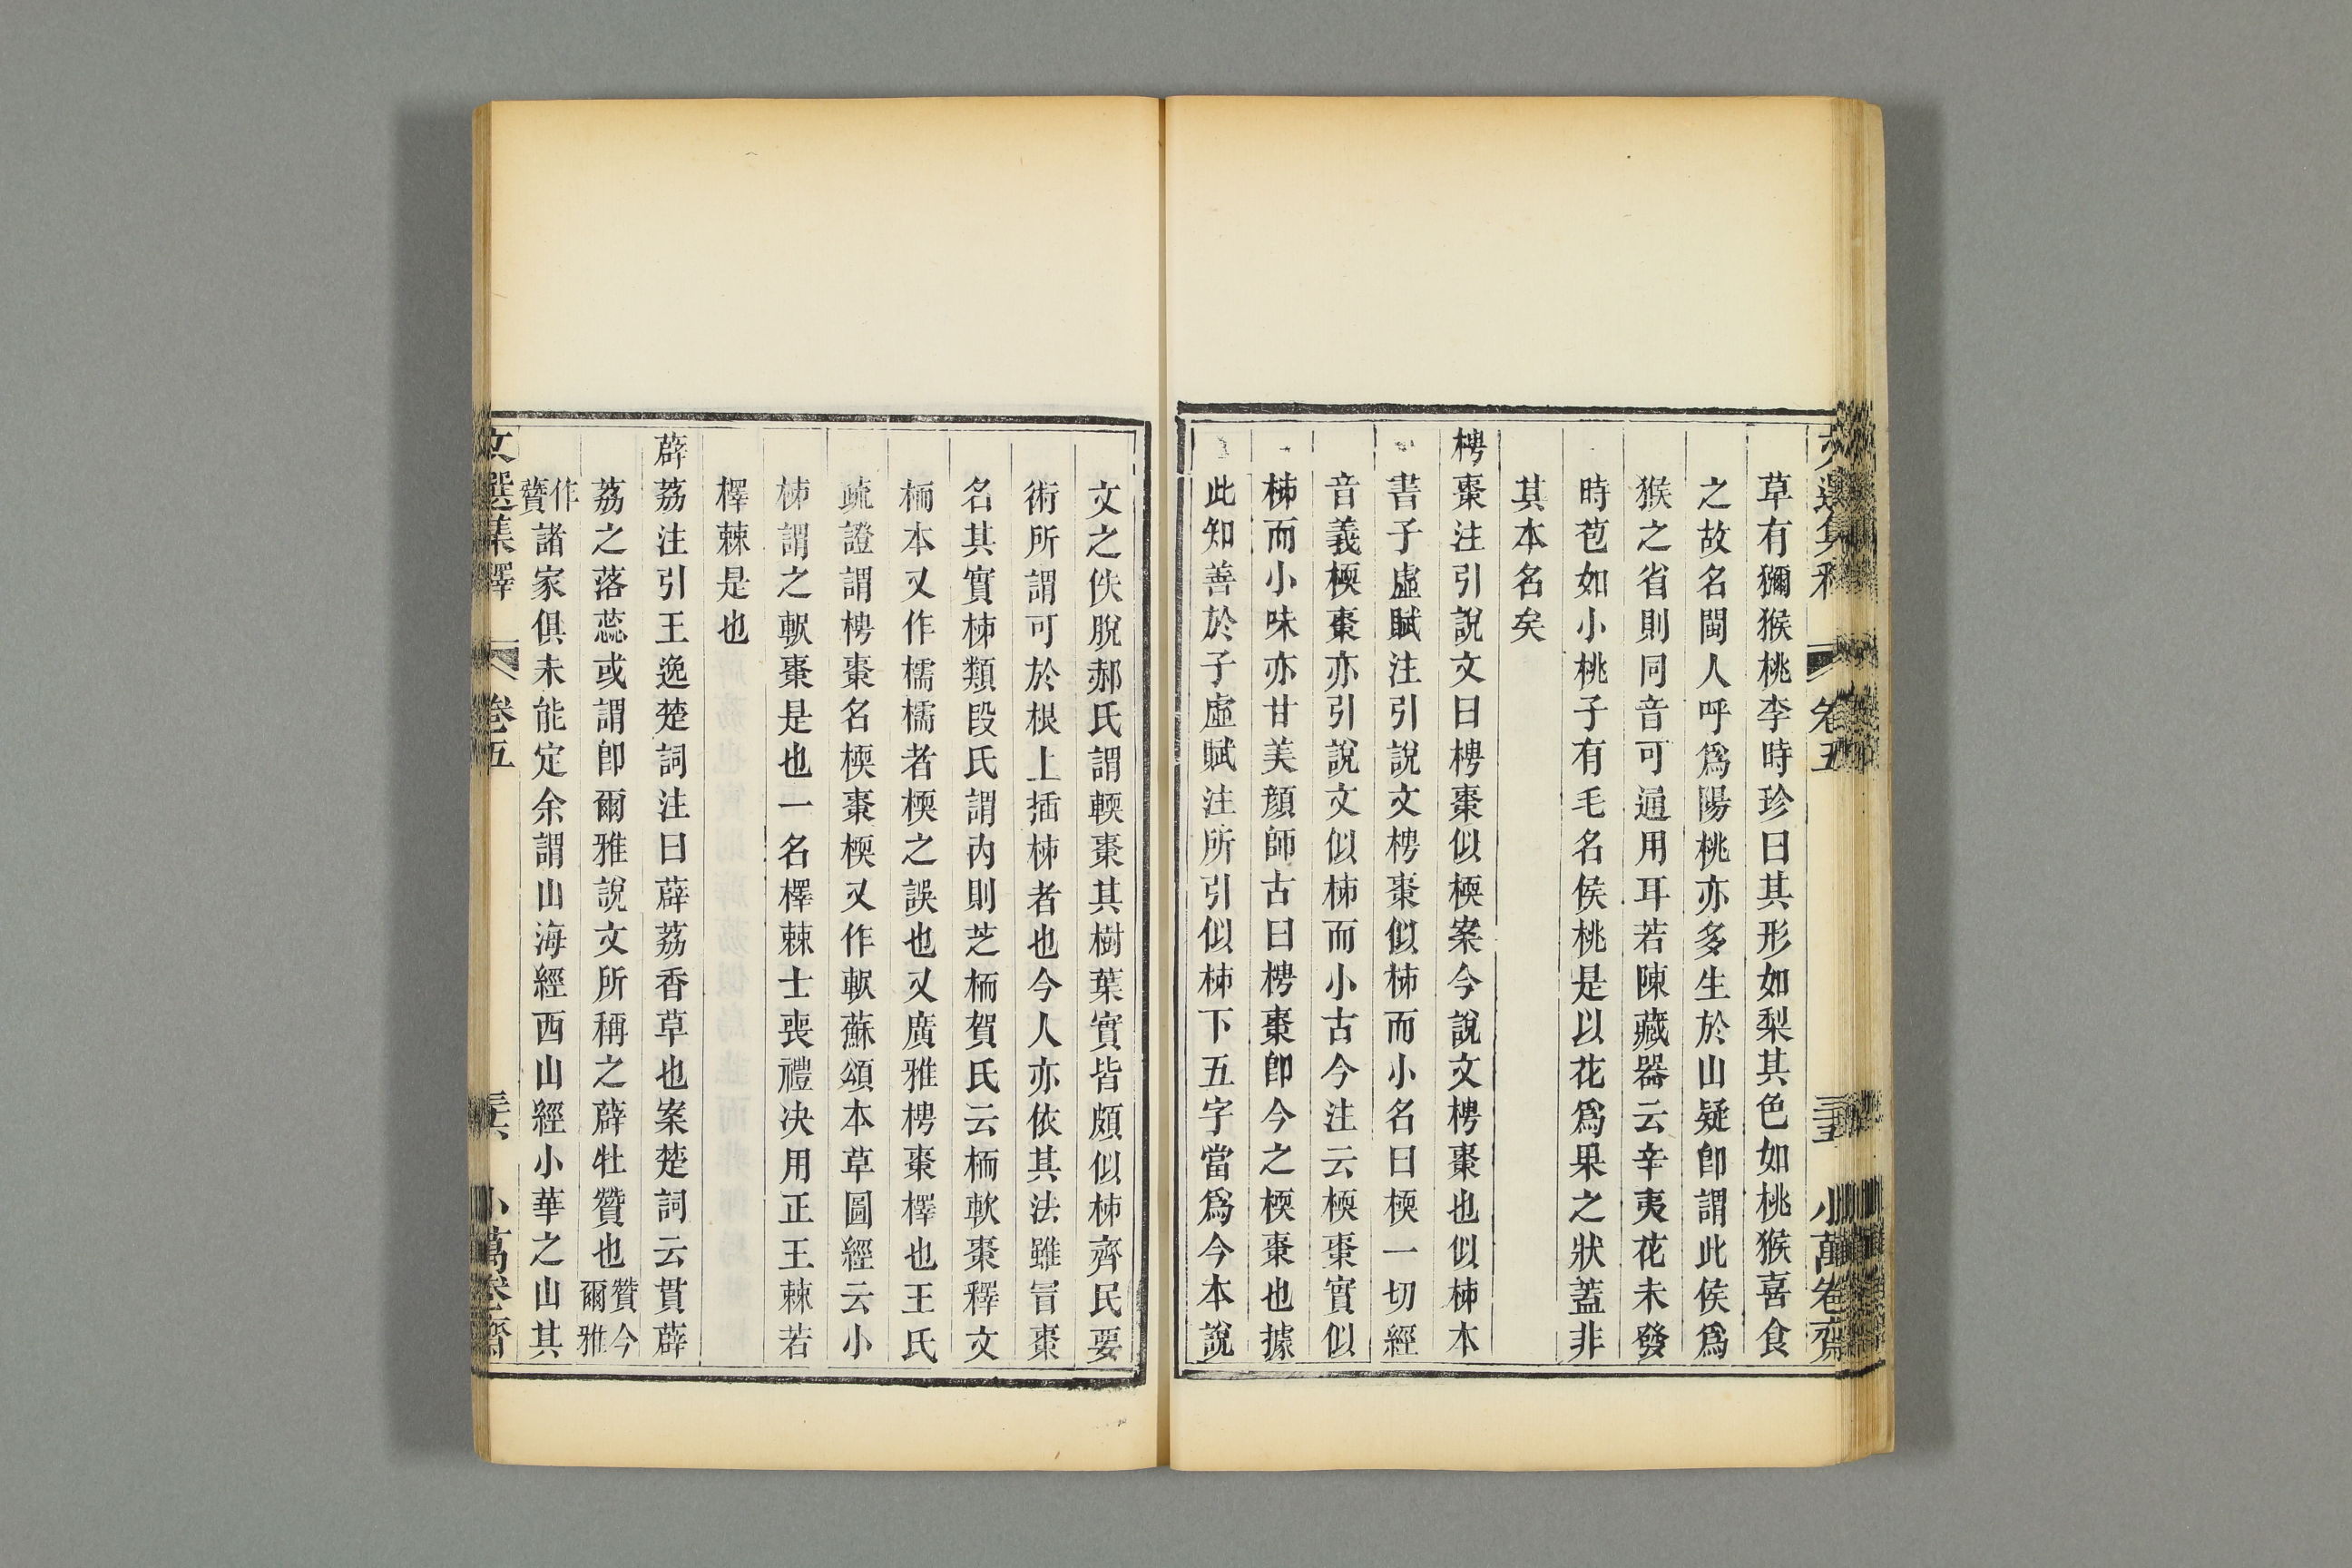 文選集釋 卷五 三五 小萬卷齋
草有獼猴桃李時珍曰其形如梨其色如桃猴喜食
之故名閩人呼爲陽桃亦多生於山疑卽謂此侯爲
猴之省則同音可通用耳若陳藏器云辛夷花未發
時苞如小桃子有毛名侯桃是以花爲果之狀蓋非
其本名矣
梬棗注引說文曰梬棗似㮕案今說文梬棗也似柹本
書子虛賦注引說文梬棗似柹而小名曰㮕一切經
音義㮕棗亦引說文似柹而小古今注云㮕棗實似
柹而小味亦甘美顏師古曰梬棗卽今之㮕棗也據
此知善於子虛賦注所引似柹下五字當爲今本說
文之佚脫郝氏謂輭棗其樹葉實皆頗似柹齊民要
術所謂可於根上插柹者也今人亦依其法雖冒棗
名其實柹類段氏謂內則芝栭賀氏云栭軟棗釋文
栭本又作檽檽者㮕之誤也又廣雅梬棗檡也王氏
疏證謂梬棗名㮕棗㮕又作軟蘇頌本草圖經云小
柹謂之軟棗是也一名檡棘士喪禮決用正王棘若
檡棘是也
薜荔注引王逸楚詞注曰薜荔香草也案楚詞云貫薜
荔之落蕊或謂卽爾雅說文所稱之薜牡贊也贊今爾雅
作贊諸家俱未能定余謂山海經西山經小華之山其
文選集釋 卷五 三六 小萬卷齋